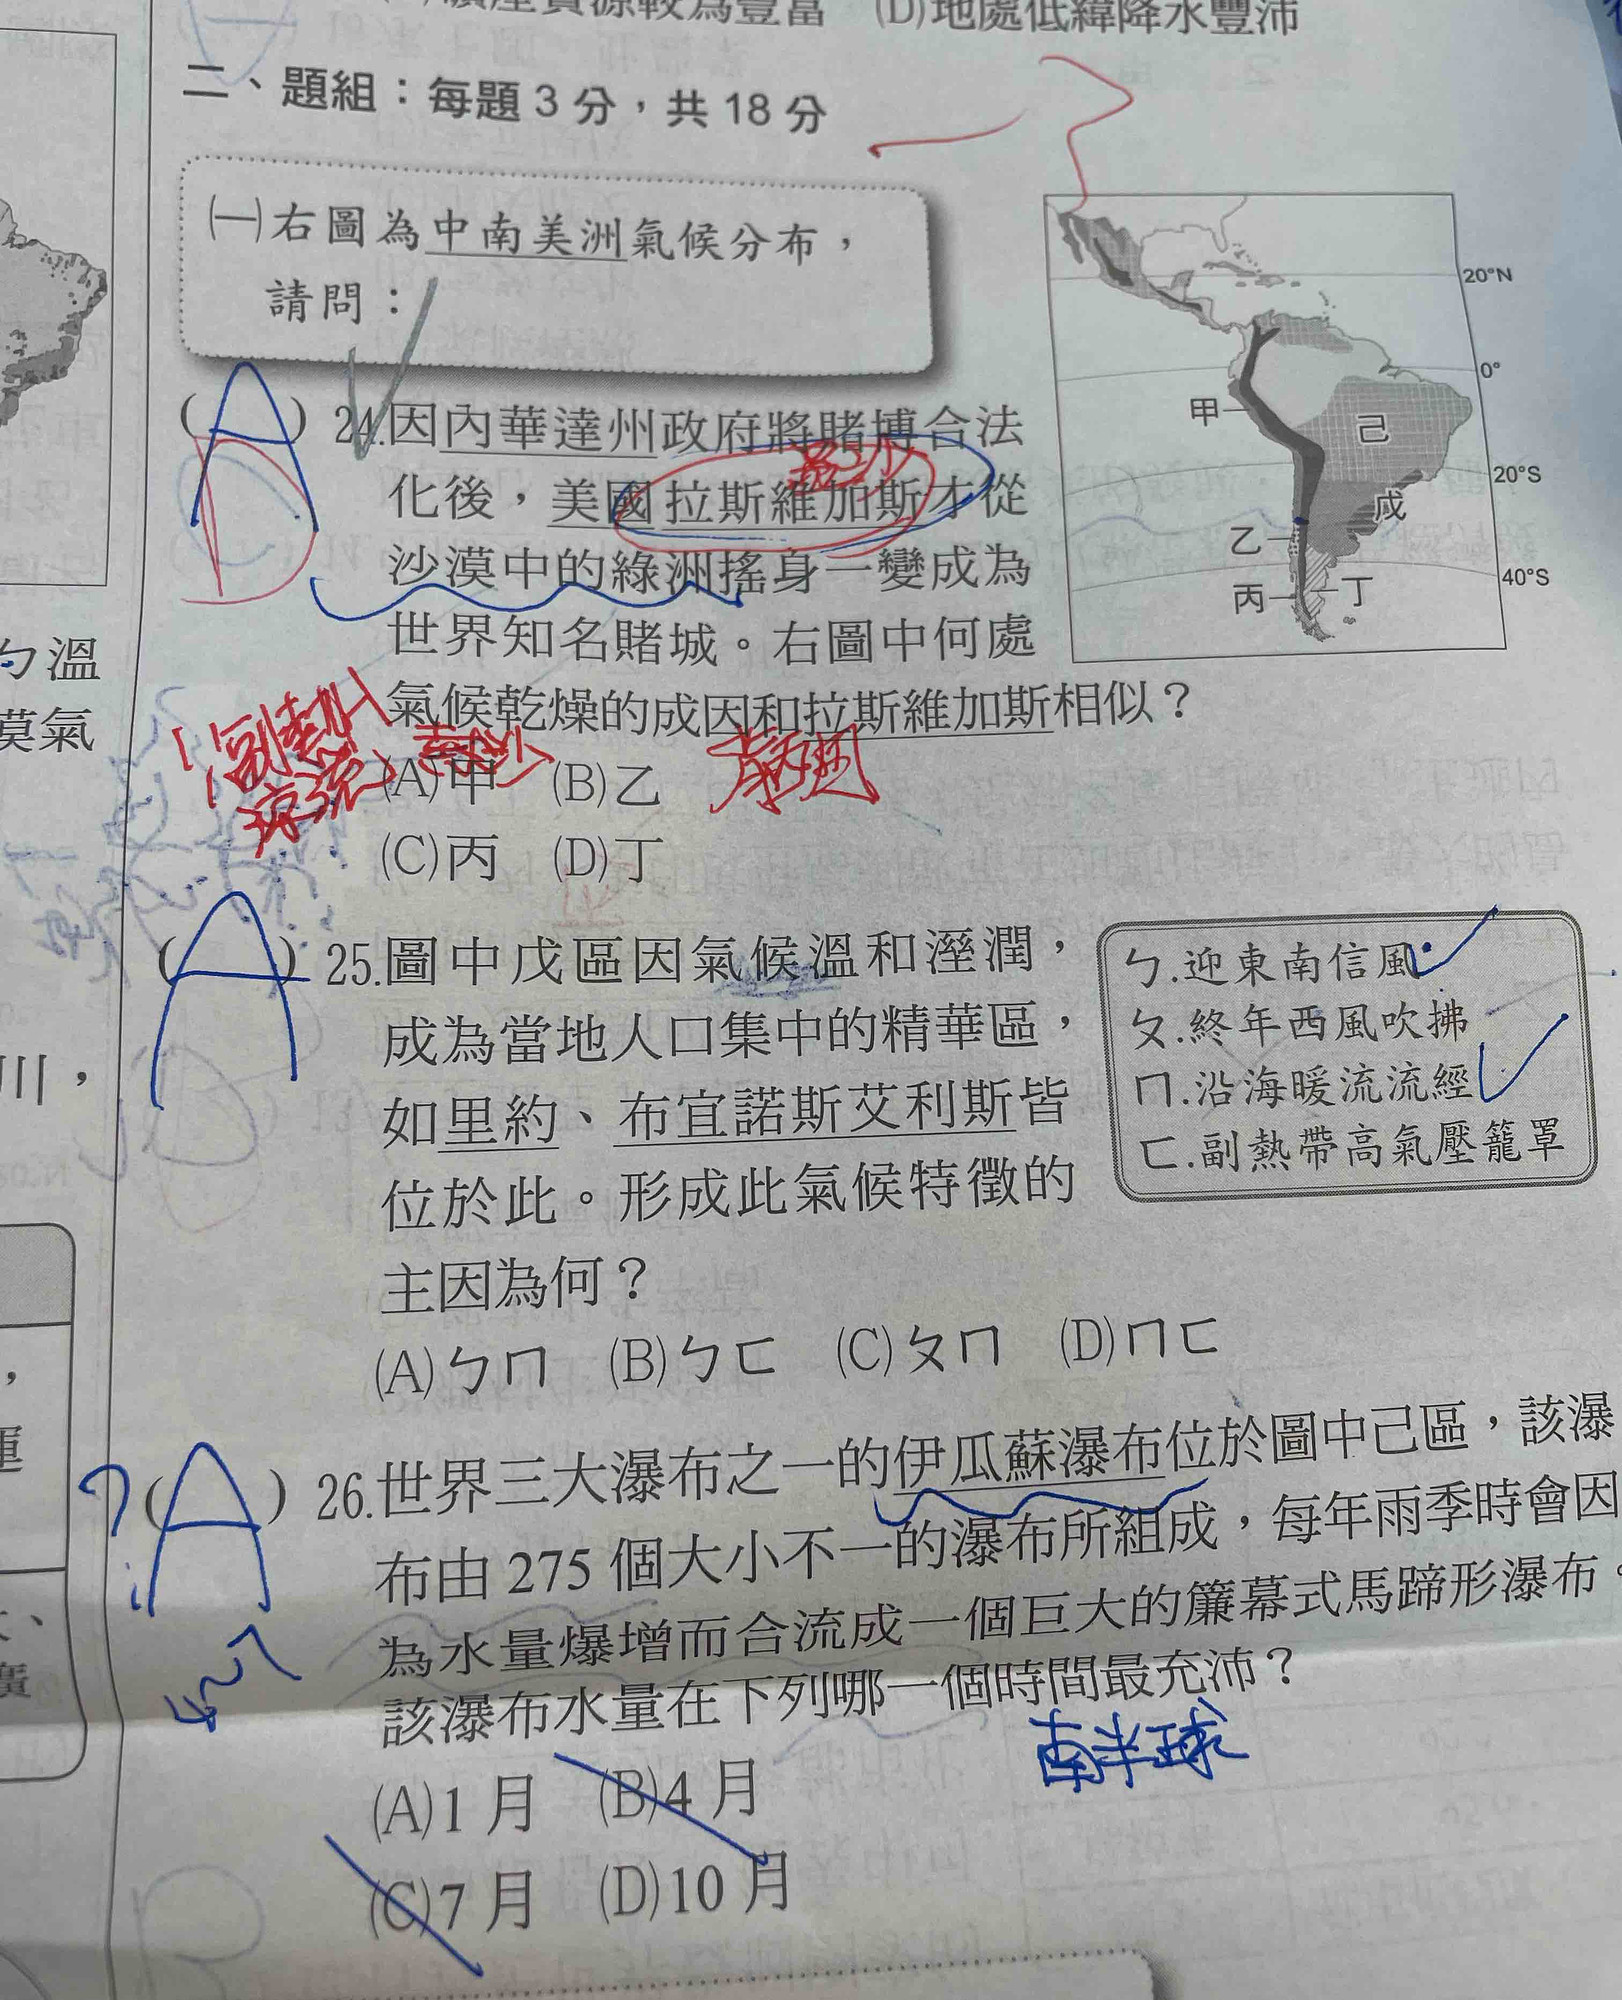 礦產資源較為豐富 (D)地處低緯降水豐沛
二、題組：每題3分，共18分
㈠右圖為中南美洲氣候分布，
請問：
20°N
0°
20°S
40°S
甲
乙
丙
丁
戊
己
(A) 24.因內華達州政府將賭博合法
化後，美國拉斯維加斯才從
沙漠中的綠洲搖身一變成為
世界知名賭城。右圖中何處
氣候乾燥的成因和拉斯維加斯相似？
D
副熱H
涼流
背西風
(A)甲 (B)乙
(C)丙 (D)丁
(A) 25.圖中戊區因氣候溫和溼潤，
成為當地人口集中的精華區，
如里約、布宜諾斯艾利斯皆
位於此。形成此氣候特徵的
主因為何？
ㄅ.迎東南信風
ㄆ.終年西風吹拂
ㄇ.沿海暖流流經
ㄈ.副熱帶高氣壓籠罩
(A)ㄅㄇ (B)ㄅㄈ (C)ㄆㄇ (D)ㄇㄈ
?(A) 26.世界三大瀑布之一的伊瓜蘇瀑布位於圖中己區，該瀑
布由275個大小不一的瀑布所組成，每年雨季時會因
為水量爆增而合流成一個巨大的簾幕式馬蹄形瀑布。
該瀑布水量在下列哪一個時間最充沛？
南半球
(A)1月 (B)4月
(C)7月 (D)10月
ㄅ溫
漠氣
川，